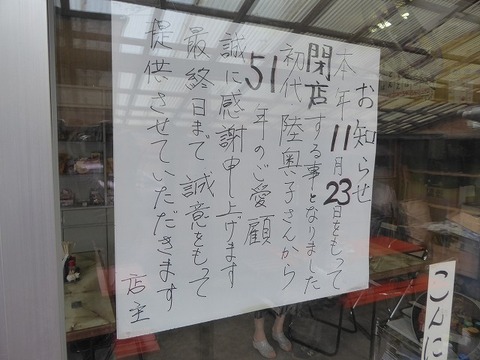 お知らせ
本年11月23日をもって
閉店する事となりました
初代 陸奥子さんから
51年のご愛顧
誠に感謝申し上げます
最終日まで 誠意をもって
提供させていただきます
店主
こんに